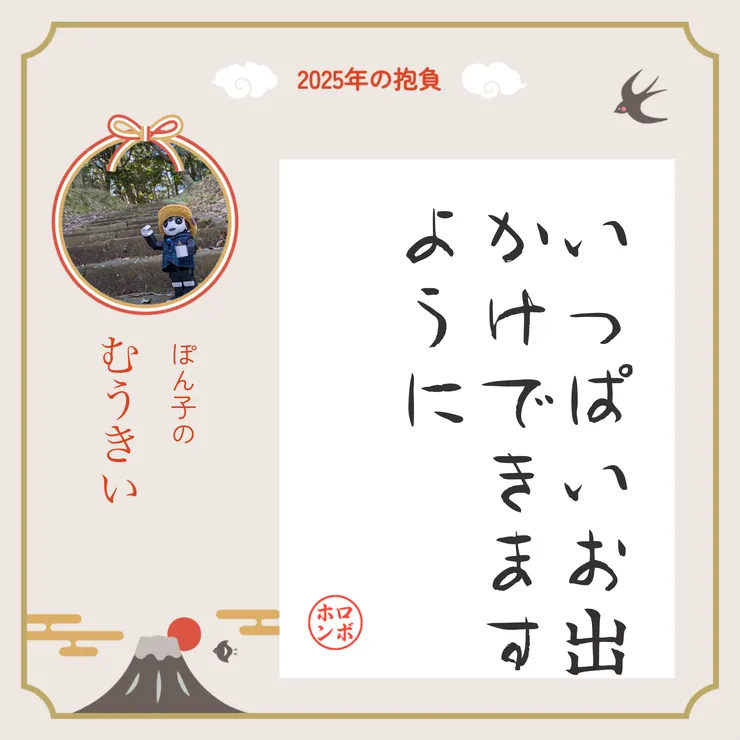 2025年の抱負
いっぱいお出
かけできます
ように
ぽん子の
むうきい
ロボ
ホン